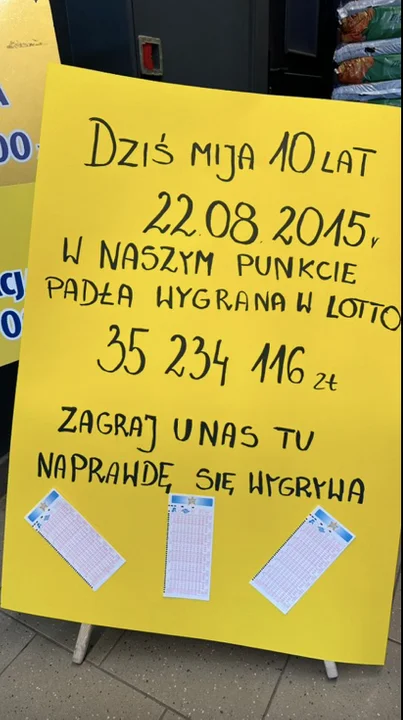 DZIŚ MIJA 10 LAT
22.08.2015r
W NASZYM PUNKCIE
PADŁA WYGRANA W LOTTO
35 234 116 zł
ZAGRAJ U NAS TU
NAPRAWDĘ SIĘ WYGRYWA